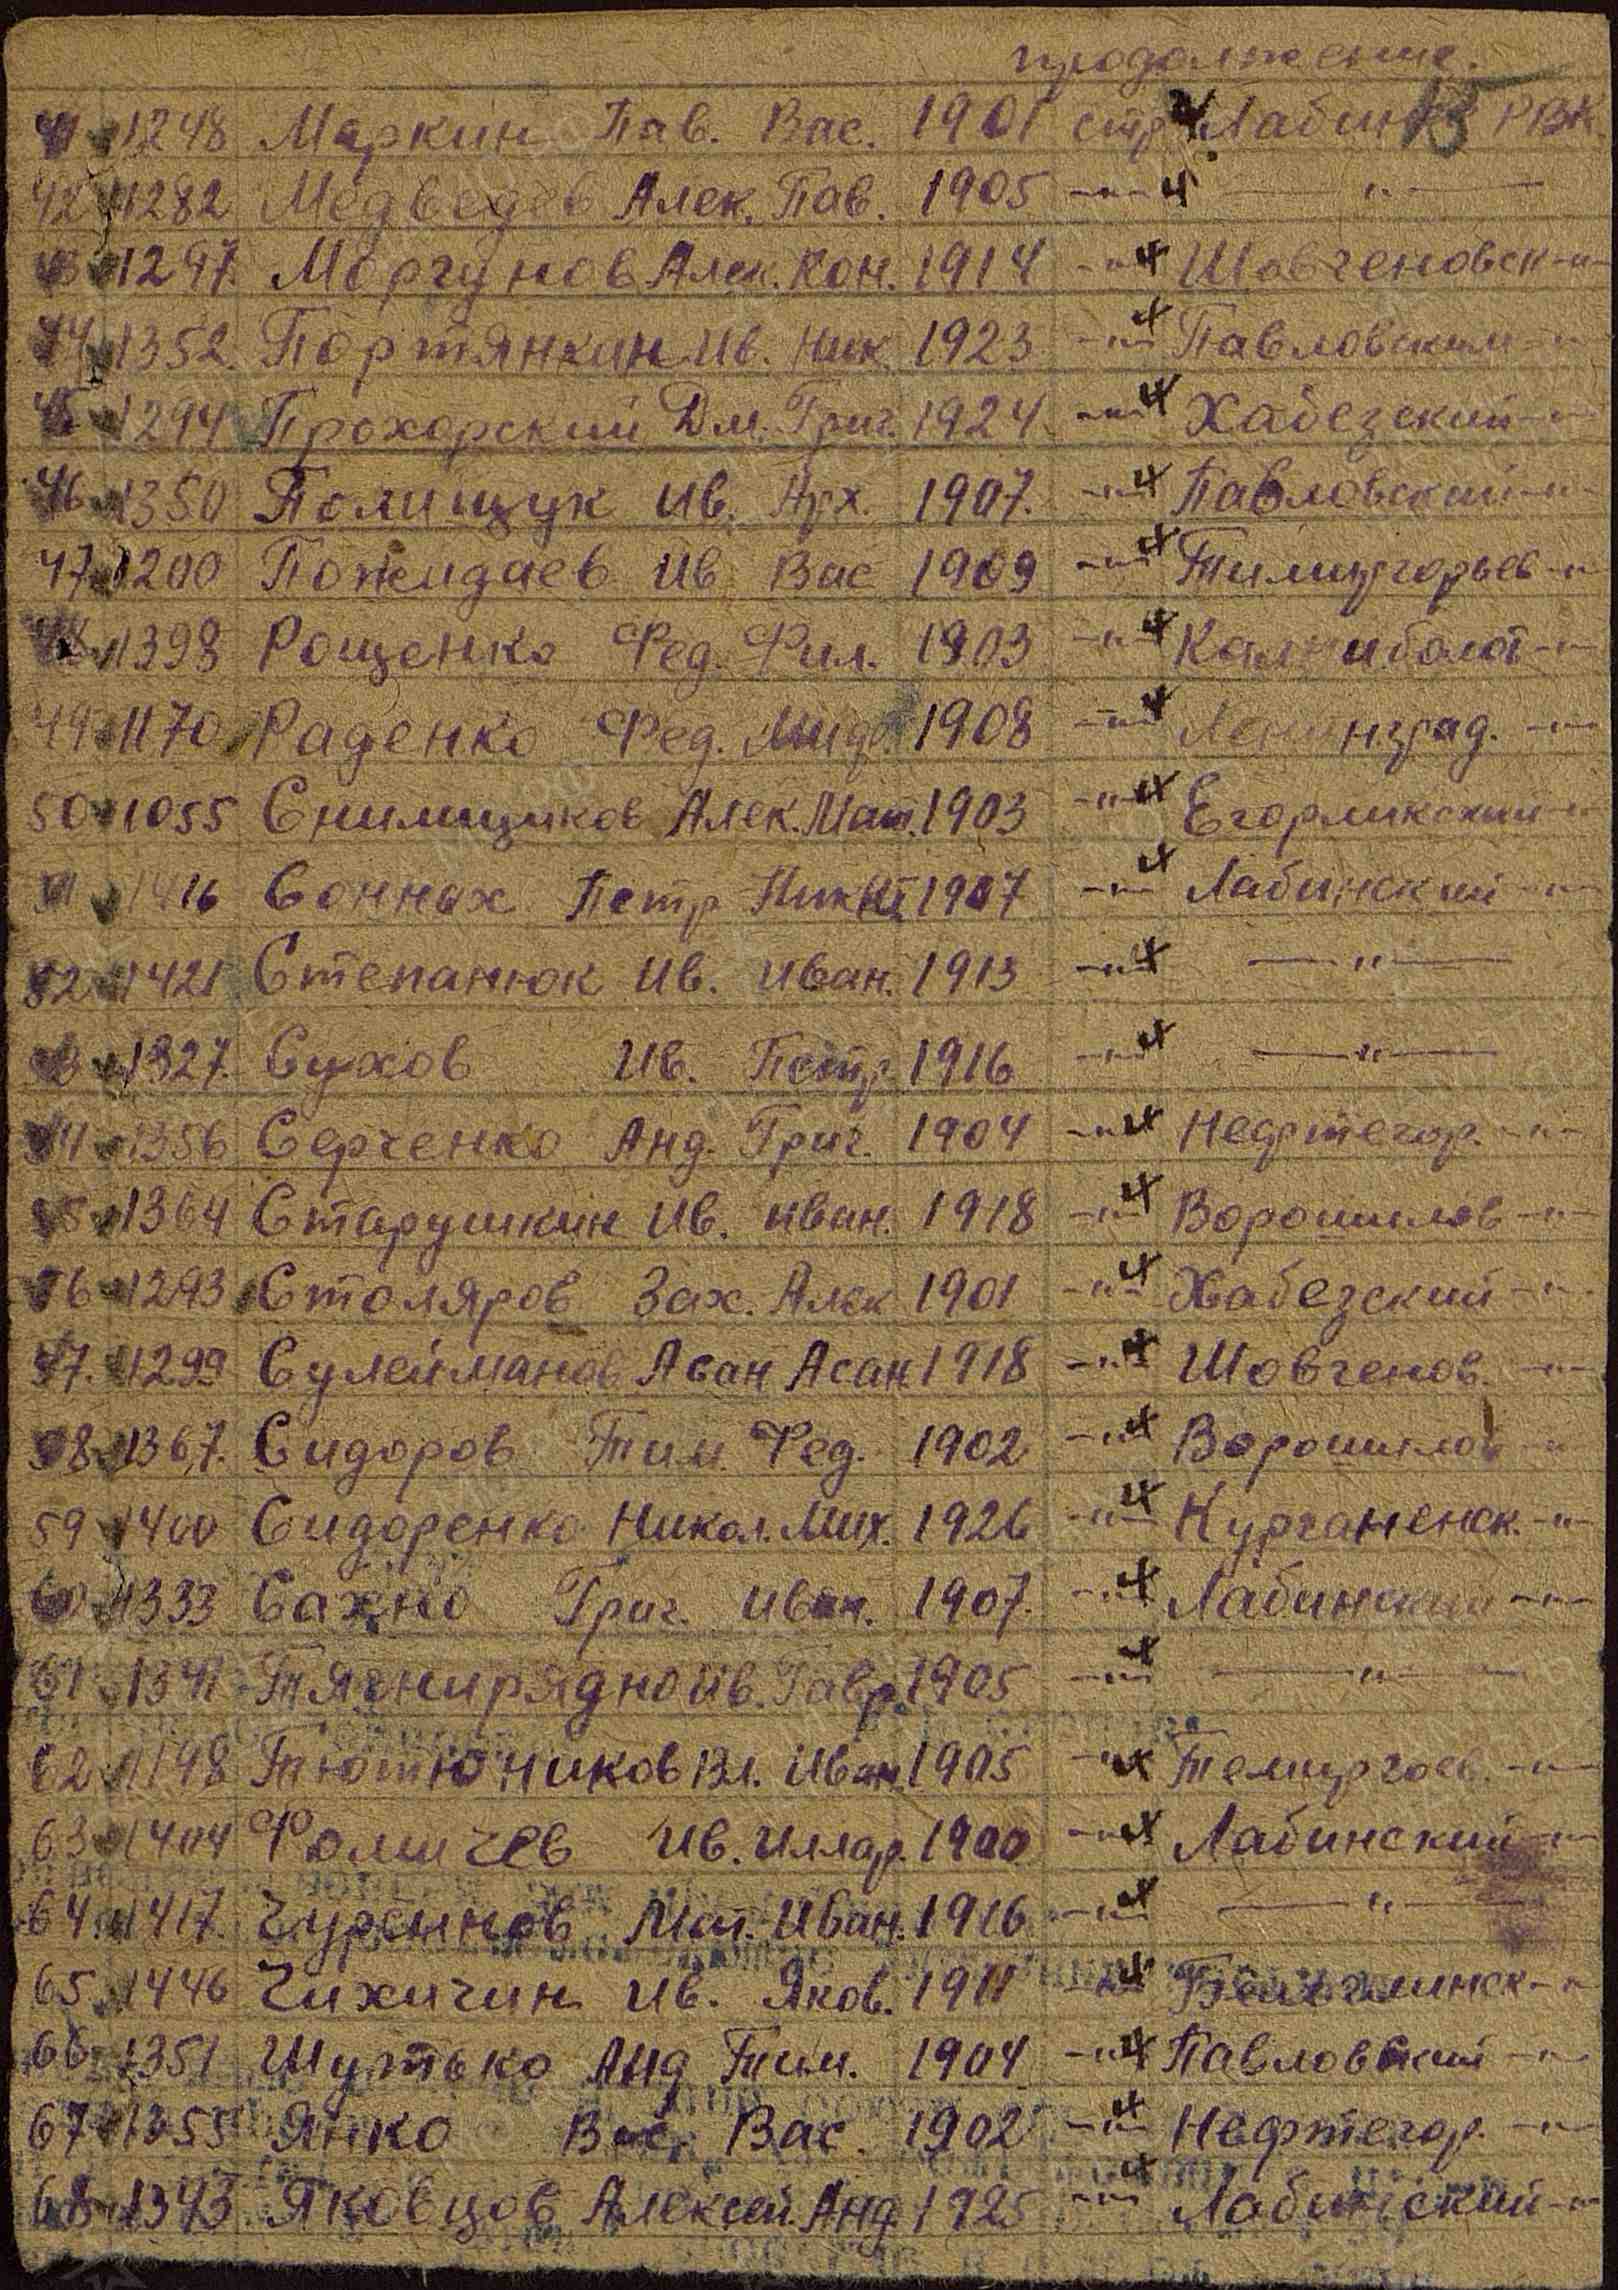 продолжение.
41 1248 Маркин Пав. Вас. 1901 стр. 4 Лабинск РВК
42 1282 Медведев Алек. Пав. 1905 -"- 4 -"-
43 1297. Моргунов Алек. Кон. 1914 -"- 4 Шовгеновск -"-
44 1352. Портянкин Ив. Ник. 1923 -"- 4 Павловским -"-
45 1294 Прохорский Дм. Григ. 1924 -"- 4 Хабезский -"-
46 1350 Полищук Ив. Арх. 1907. -"- 4 Павловский -"-
47 1200 Пожидаев Ив Вас 1909 -"- 4 Тимиргорьев -"-
48 1398 Рощенко Фед. Фил. 1903 -"- 4 Калниболот -"-
49 1170 Раденко Фед. 1908 -"- 4 Ленинград. -"-
50 1055 Снимщиков Алек. Мат. 1903 -"- 4 Егорликский -"-
51 1416 Соннах Петр Никит 1907 -"- 4 Лабинский -"-
52 1421 Степанюк Ив. Иван. 1913 -"- 4 -"-
53 1327. Сухов Ив. Петр. 1916 -"- 4 -"-
54 1356 Серченко Анд. Григ. 1904 -"- 4 Нефтегор. -"-
55 1364 Старушкин Ив. Иван. 1918 -"- 4 Ворошилов -"-
56 1293 Столяров Зах. Алек 1901 -"- 4 Хабезский -"-
57. 1299 Сулейманов Асан Асан 1918 -"- 4 Шовгенов. -"-
58 1367. Сидоров Тим. Фед. 1902 -"- 4 Ворошилов -"-
59 1400 Сидоренко Никол. Мих. 1926 -"- 4 Курганенск. -"-
60 1333 Сахно Григ. Иван. 1907. -"- 4 Лабинский -"-
61 1341 Тягнирядно Ив. Гавр. 1905 -"- 4 -"-
62 1198 Тютюников Вл. Иван 1905 -"- 4 Темиргоев. -"-
63 1404 Фомичев Ив. Иллар. 1900 -"- 4 Лабинский -"-
64. 1417. Чурсинов Мат. Иван. 1916 -"- 4 -"-
65 1446 Чихичин Ив. Яков. 1911 -"- 4 -"-
66 1351 Шутько Анд Тим. 1904 -"- 4 Павловский -"-
67 1355 Янко Вас. Вас. 1902 -"- 4 Нефтегор. -"-
68 1393 Яковцов Алексей Анд 1925 -"- 4 Лабинский -"-